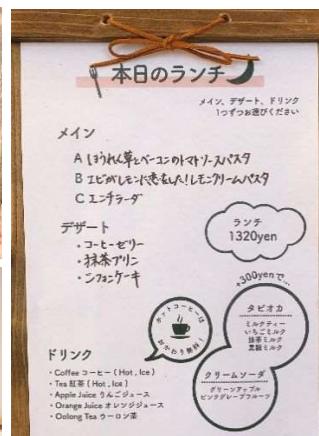 本日のランチ
メイン、デザート、ドリンク
1つずつお選びください
メイン
A ほうれん草とベーコンのトマトソースパスタ
B エビがレモンに恋をした!レモンクリームパスタ
C エンチラーダ
デザート
・コーヒーゼリー
・抹茶プリン
・シフォンケーキ
ランチ
1320yen
+300yenで…
タピオカ
ミルクティー
いちごミルク
抹茶ミルク
黒糖ミルク
クリームソーダ
グリーンアップル
ピンクグレープフルーツ
ホットコーヒーは
おかわり無料!
ドリンク
・Coffee コーヒー ( Hot , Ice )
・Tea 紅茶 ( Hot , Ice )
・Apple Juice りんごジュース
・Orange Juice オレンジジュース
・Oolong Tea ウーロン茶